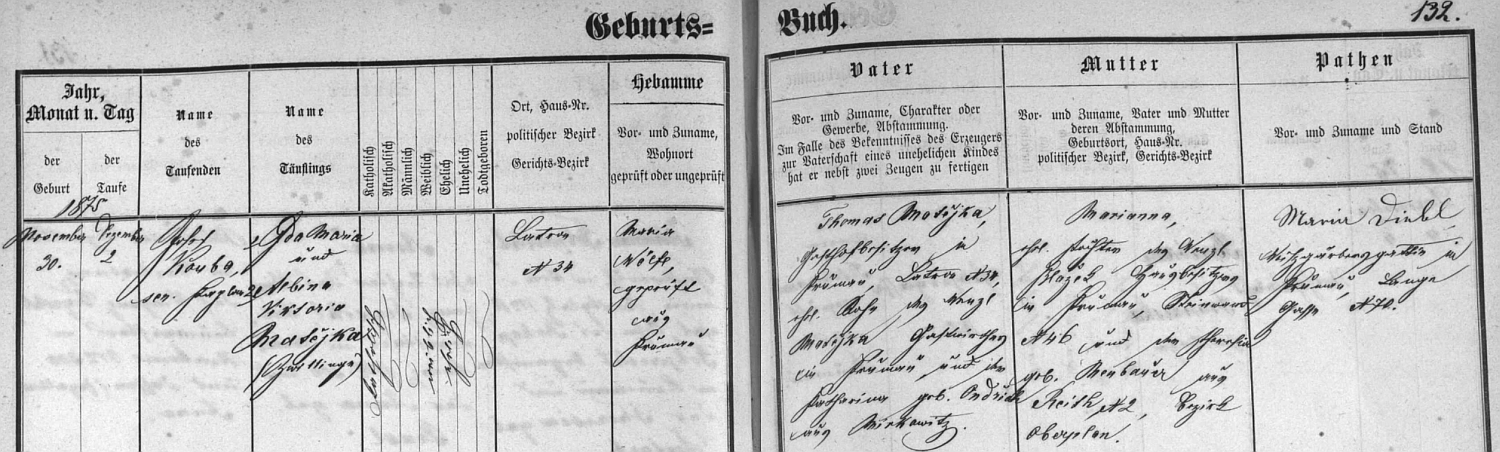 Geburts=
Buch.
132.
Jahr,
Monat u. Tag
der
Geburt
der
Taufe
Name
des
Taufenden
Name
des
Täuflings
Katholisch
Akatholisch
Männlich
Weiblich
Ehelich
Unehelich
Todtgeboren
Ort, Haus-Nr.
politischer Bezirk
Gerichts-Bezirk
Hebamme
Vor- und Zuname,
Wohnort
geprüft oder ungeprüft
Vater
Vor- und Zuname, Charakter oder
Gewerbe, Abstammung.
Im Falle des Bekenntnisses des Erzeugers
zur Vaterschaft eines unehelichen Kindes
hat er nebst zwei Zeugen zu fertigen
Mutter
Vor- und Zuname, Vater und Mutter
deren Abstammung,
Geburtsort, Haus-Nr.
politischer Bezirk, Gerichts-Bezirk
Pathen
Vor- und Zuname und Stand
1875
November
30.
Dezember
2
Josef
Kouba,
Ida Maria
und
Albina
Viktoria
Matějka
(Zwillinge)
katholisch
weiblich
ehelich
Latron
N 34
Maria
Wölfl,
geprüft
aus
Krumau
Thomas Matějka,
in
Krumau, Latron N 34,
ehl. Sohn des Wenzl
Matějka Gastwirthes
in Krumau, und der
Katharina geb. Ondřich
aus Mirkowitz.
Marianna,
ehl. Tochter des Wenzl
Blažek Hausbesitzers
in Krumau,
N 46 und der Theresia
geb. Neubauer aus
Reith N 2, Bezirk
Oberplan.
Maria Diebl,
in
Krumau, Lange
Gasse N 72.